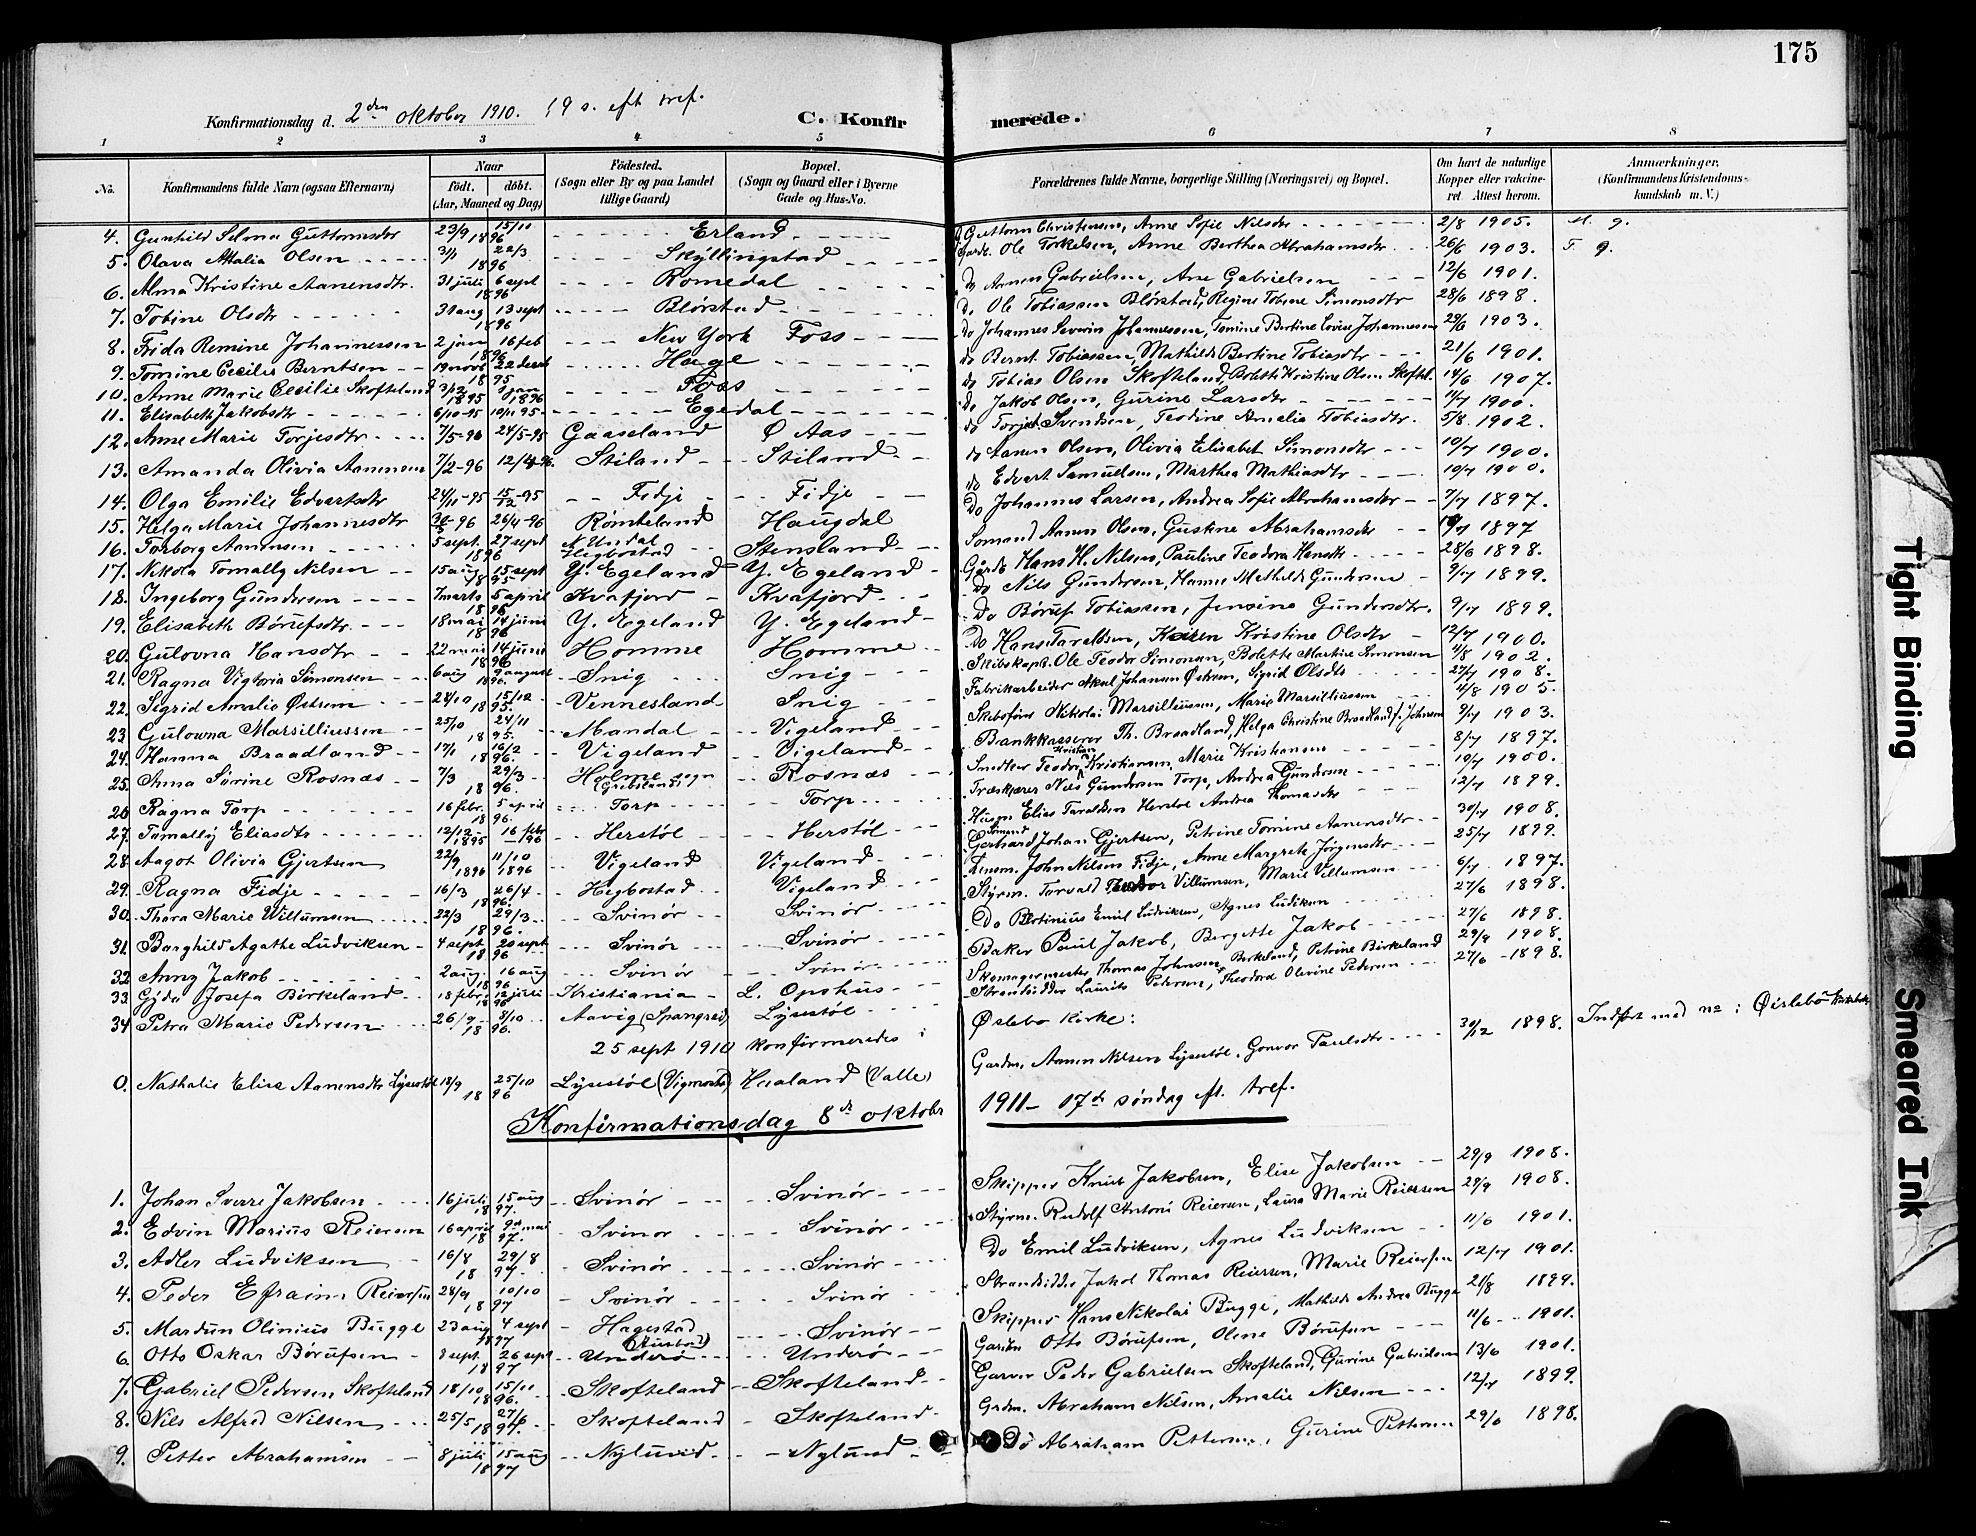 175
Konfirmationsdag d. 2den oktober 1910. 19 s. eft tref.
C. Konfirmerede.
1 2 3 4 5 6 7 8
No. Konfirmandens fulde Navn (ogsaa Efternavn) Naar födt. döbt. (Aar, Maaned og Dag) Födested. (Sogn eller By og paa Landet tillige Gaard) Bopæl. (Sogn og Gaard eller i Byerne Gade og Hus-No. Forældrenes fulde Navne, borgerlige Stilling (Næringsvei) og Bopæl. Om havt de naturlige Kopper eller vaccineret Attest herom. Anmærkninger. (Konfirmandens Kristendomskundskab m. V.)
4. Gunhild Selma Guttormsdtr 23/9 15/10 1896 Erland Guttorm Christensen, Anne Sofie Nilsdtr 2/8 1905. M. g.
5. Olava Attalia Olsen 3/1 22/3 1896 Skyllingstad Gardb. Ole Torkelsen, Anne Berthea Abrahamsdtr 26/6 1903. T. g.
6. Alma Kristine Aanensdtr. 31 juli 6 sept 1896 Romedal do Aanen Gabrielsen, Ane Gabrielsen 12/6 1901.
7. Tobine Olsdtr 31 aug 13 sept 1896 Blörstad do Ole Tobiassen Blörstad, Regine Tobine Simonsdtr 28/6 1898.
8. Frida Remine Johannessen 2 jan 16 feb 1896 New York Foss do Johannes Severin Johannessen, Tomine Bertine Lovise Johannessen 29/6 1903.
9. Tomine Cecilie Berntsen 19 novb 22 decb 1895 Hage do Bernt Tobiassen, Mathilde Bertine Tobiasdtr 21/6 1901.
10. Anne Marie Cecilie Skofteland 3/12 1895 jan 1896 Foss do Tobias Olsen Skofteland, Bolette Kristine Olsen Skoftel. 14/6 1907.
11. Elisabeth Jakobsdtr 6/10-95 10/11 95 Egedal do Jakob Olsen, Gurine Larsdtr 11/7 1900.
12. Anne Marie Torjesdtr 7/5-96 24/5-95 Gaaseland Ø Aas do Torjul Svendsen, Teodine Amalie Tobiasdtr. 5/8. 1902.
13. Amanda Olivia Aanensen 7/2-96 12/4 96. Stiland Stiland do Aanen Olsen, Olivia Elisabet Simonsdtr 10/7 1900.
14. Olga Emilie Edvartsdtr 24/11-95 15/12-95 Fidje Fidje do Edvart Samuelsen, Marthea Mathiasdtr 10/7 1900.
15. Helga Marie Johannesdtr 96 26/4-96 Römteland Haugdal Do Johannes Larsen, Andrea Sofie Abrahamsdtr 7/7 1897.
16. Torborg Aanensen 5 sept. 27 sept 1896 N. Undal Hegbostad Stensland Somand Aanen Olsen, Gustine Abrahamsdtr 1897
17. Nikota Tomally Nilsen 15 aug 15 sept 1895 Y. Egeland Y. Egeland Gårdb Hans H. Nilsen, Pauline Teodora Hansdtr 28/6 1898.
18. Ingeborg Gundersen 7 marts 5 april 1896 Kvafjord Kvafjord Do Nils Gundersen, Hanne Mathilde Gundersen 9/7 1899.
19. Elisabeth Börufsdtr. 18 mai 14 juni 1896 Y. Egeland Y. Egeland Do Böruf Tobiassen, Jensine Gundersdtr. 9/7 1899.
20. Gulovna Hansdtr 22 mai 14 juni 1896 Homme Homme Do Hans Taraldsen, Karen Kristine Olsdtr 12/7 1900.
21. Ragna Vigtoria Simonsen 6 aug 9 august 1896. Snig Snig Skibskapt. Ole Teodor Simonsen, Bolette Martine Simonsen 4/8 1902.
22. Sigrid Amalie Østrem 24/10 15/12 1895. Vennesland Snig Fabrikarbeider Aksel Johansen Østrem, Sigrid Olsdtr 27/7 1908.
23 Gulowna Marsilliussen 25/10 24/11 1895. Mandal Vigeland Skibsförer Nikolai Marsilliussen, Marie Marsilliussen 4/8 1905.
24. Hanna Braadland 17/1 16/2 1896. Vigeland Vigeland Bankkasserer Th. Braadland, Helga Christine Braadland f. Johnsen 9/7 1903.
25. Anna Sörine Rosnæs 7/3 29/3 1896. Holme sogn (Grebstand) Rosnæs Smedlær Teodor Kristian Kristiansen, Marie Kristiansen 8/7 1897.
26 Ragna Torp 16 febr. 5 april 1896. Torp Torp Træskjærer Nils Gundersen Torp, Andrea Gundersen 10/7 1900.
27. Tomally Eliasdtr 12/12 1895 16 febr 96 Herstöl Herstöl Husm Elias Taraldsen Herstöl Andrea Thomasdtr 12/7 1899.
28. Aagot Olivia Gjertsen 22/9 1896 11/10 1896 Vigeland Vigeland Sömand Gerhard Johan Gjertsen, Petrine Tomine Aanensdtr 30/7 1908.
29. Ragna Fidje 16/3 26/4 1896. Hegbostad Vigeland Lensm. John Nilsen Fidje, Anne Margrete Jörgensdtr 25/7 1899.
30. Thora Marie Willumsen 22/3 29/3 1896. Svinör Svinör Styrm. Torvald Teodor Villumsen, Marie Villumsen 6/7 1897.
31. Borghild Agathe Ludviksen 4 sept 20 sept 1896 Svinör Svinör Do Bertinius Emil Ludviksen, Agnes Ludiksen 27/6 1898.
32. Anny Jakob 2 aug. 16 aug 1896 Svinör Svinör Baker Paul Jakob, Bergette Jakob 27/6 1898.
33 Gyda Josefa Birkeland 18 febr. 12 juli 1896 Kristiania L. Opshus Skomagermester Thomas Johnsen Birkeland, Petrine Birkeland 29/9 1908.
34 Petra Marie Pedersen 26/9 8/10 1896. Aavig (Spangreid) Lysestöl Strandsidder Laurits Pedersen, Theodora Olevine Pedersen 27/6 1898.
25 sept 1910 konfirmeredes i Øslebo Kirke:
0. Nathalie Elise Aanensdtr Lysestöl 18/9 25/10 1896 Lysestöl (Vigmostad) Haaland (Valle) Gardm. Aanen Nilsen Lysestöl. Gonvor Paulsdtr 30/12 1898. Indfört med no : Øislebö
Konfirmationsdag 8de oktober 1911 – 17de söndag eft. tref.
1. Johan Sverre Jakobsen 16 juli 15 aug 1897. Svinör Svinör Skipper Knut Jakobsen, Elise Jakobsen 29/9 1908.
2. Edvin Marius Reiersen 16 april 9 mai 1897. Svinör Svinör Styrm. Rudolf Antoni Reiersen, Laura Marie Reiersen 29/9 1908.
3. Adler Ludviksen 16/8 29/8 1897. Svinör Svinör Do Emil Ludviksen, Agnes Ludviksen 11/6 1901.
4. Peder Efraim Reiersen 28/9 10/10 1897 Svinör Svinör Strandsidder Jakob Thomas Reiersen, Marie Reiersen 12/7 1901.
5. Mardun Olinius Bugge 23 aug 4 sept 1897 Hagestad (Ausbod) Svinör Skipper Hans Nikolai Bugge, Mathilde Andrea Bugge 21/8 1899.
6. Otto Oskar Börufsen 8 sept. 26 sept 1897 Underö Underö Garden Otto Börufsen, Olene Börufsen 11/6 1901.
7. Gabriel Pedersen Skofteland 18/10 15/11 1896. Skofteland Skofteland Garver Peder Gabrielsen Skofteland, Gurine Gabrielsen 13/6 1901.
8. Nils Alfred Nilsen 25/5 27/6 1897. Skofteland Skofteland Grdm. Abraham Nilsen, Amalie Nilsen 12/7 1899.
9. Petter Abrahamsen 8 juli 15 aug 1897 Nylund Nylund Do Abraham Pettersen, Gurine Pettersen 29/6 1898.
Tight Binding
Smeared Ink